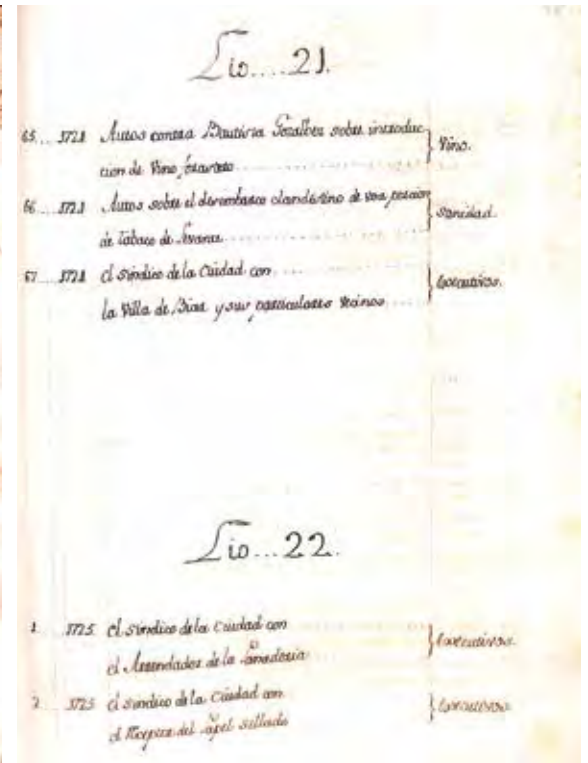 Lio....21.
65... 1721 Autos contra Bautista Gosalbes sobre introduc
cion de Vino forastero
Vino.
66... 1721 Autos sobre el desembarco clandestino de una porcion
de tabaco de Levante
Sanidad.
67... 1721 el Síndico de la Ciudad con....
la Villa de Biar y sus particulares Vecinos....
Executivos.
Lio...22.
1.... 1725 el Síndico de la Ciudad con
el Arrendador de la
Executivos.
2.... 1725 el Síndico de la Ciudad con
el Receptor del Papel sellado
Executivos.